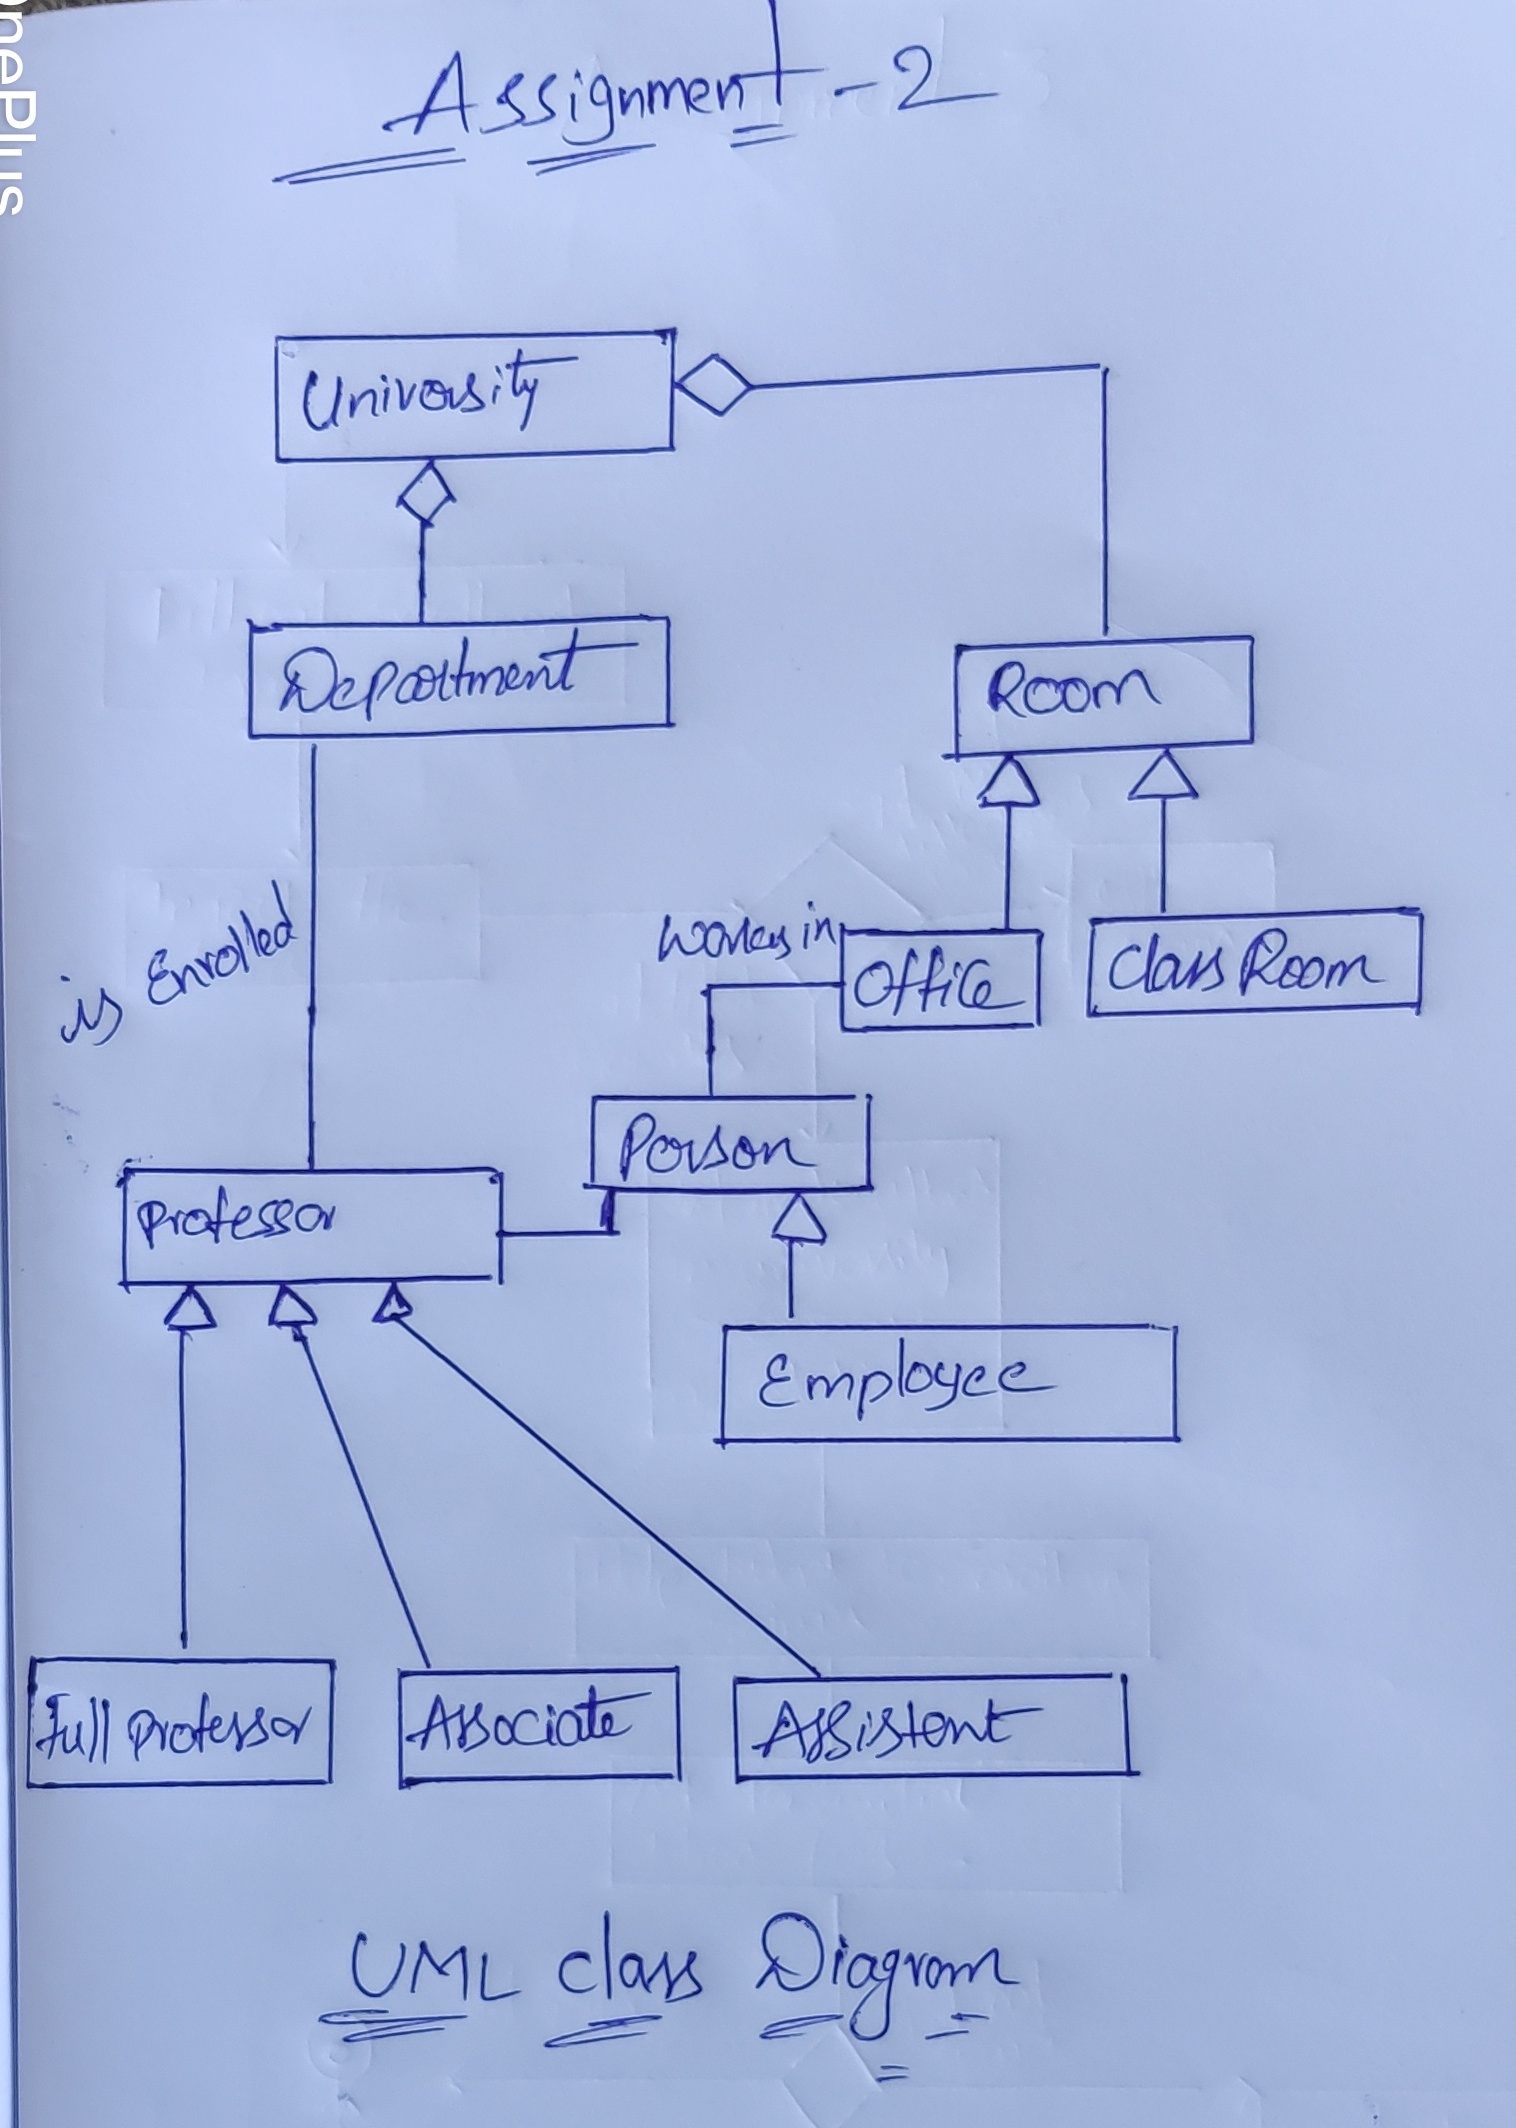 Assignment - 2
University
Department
Room
is Enrolled
works in
Office
Class Room
Person
Professor
Employee
Full Professor
Associate
Assistent
UML class Diagram